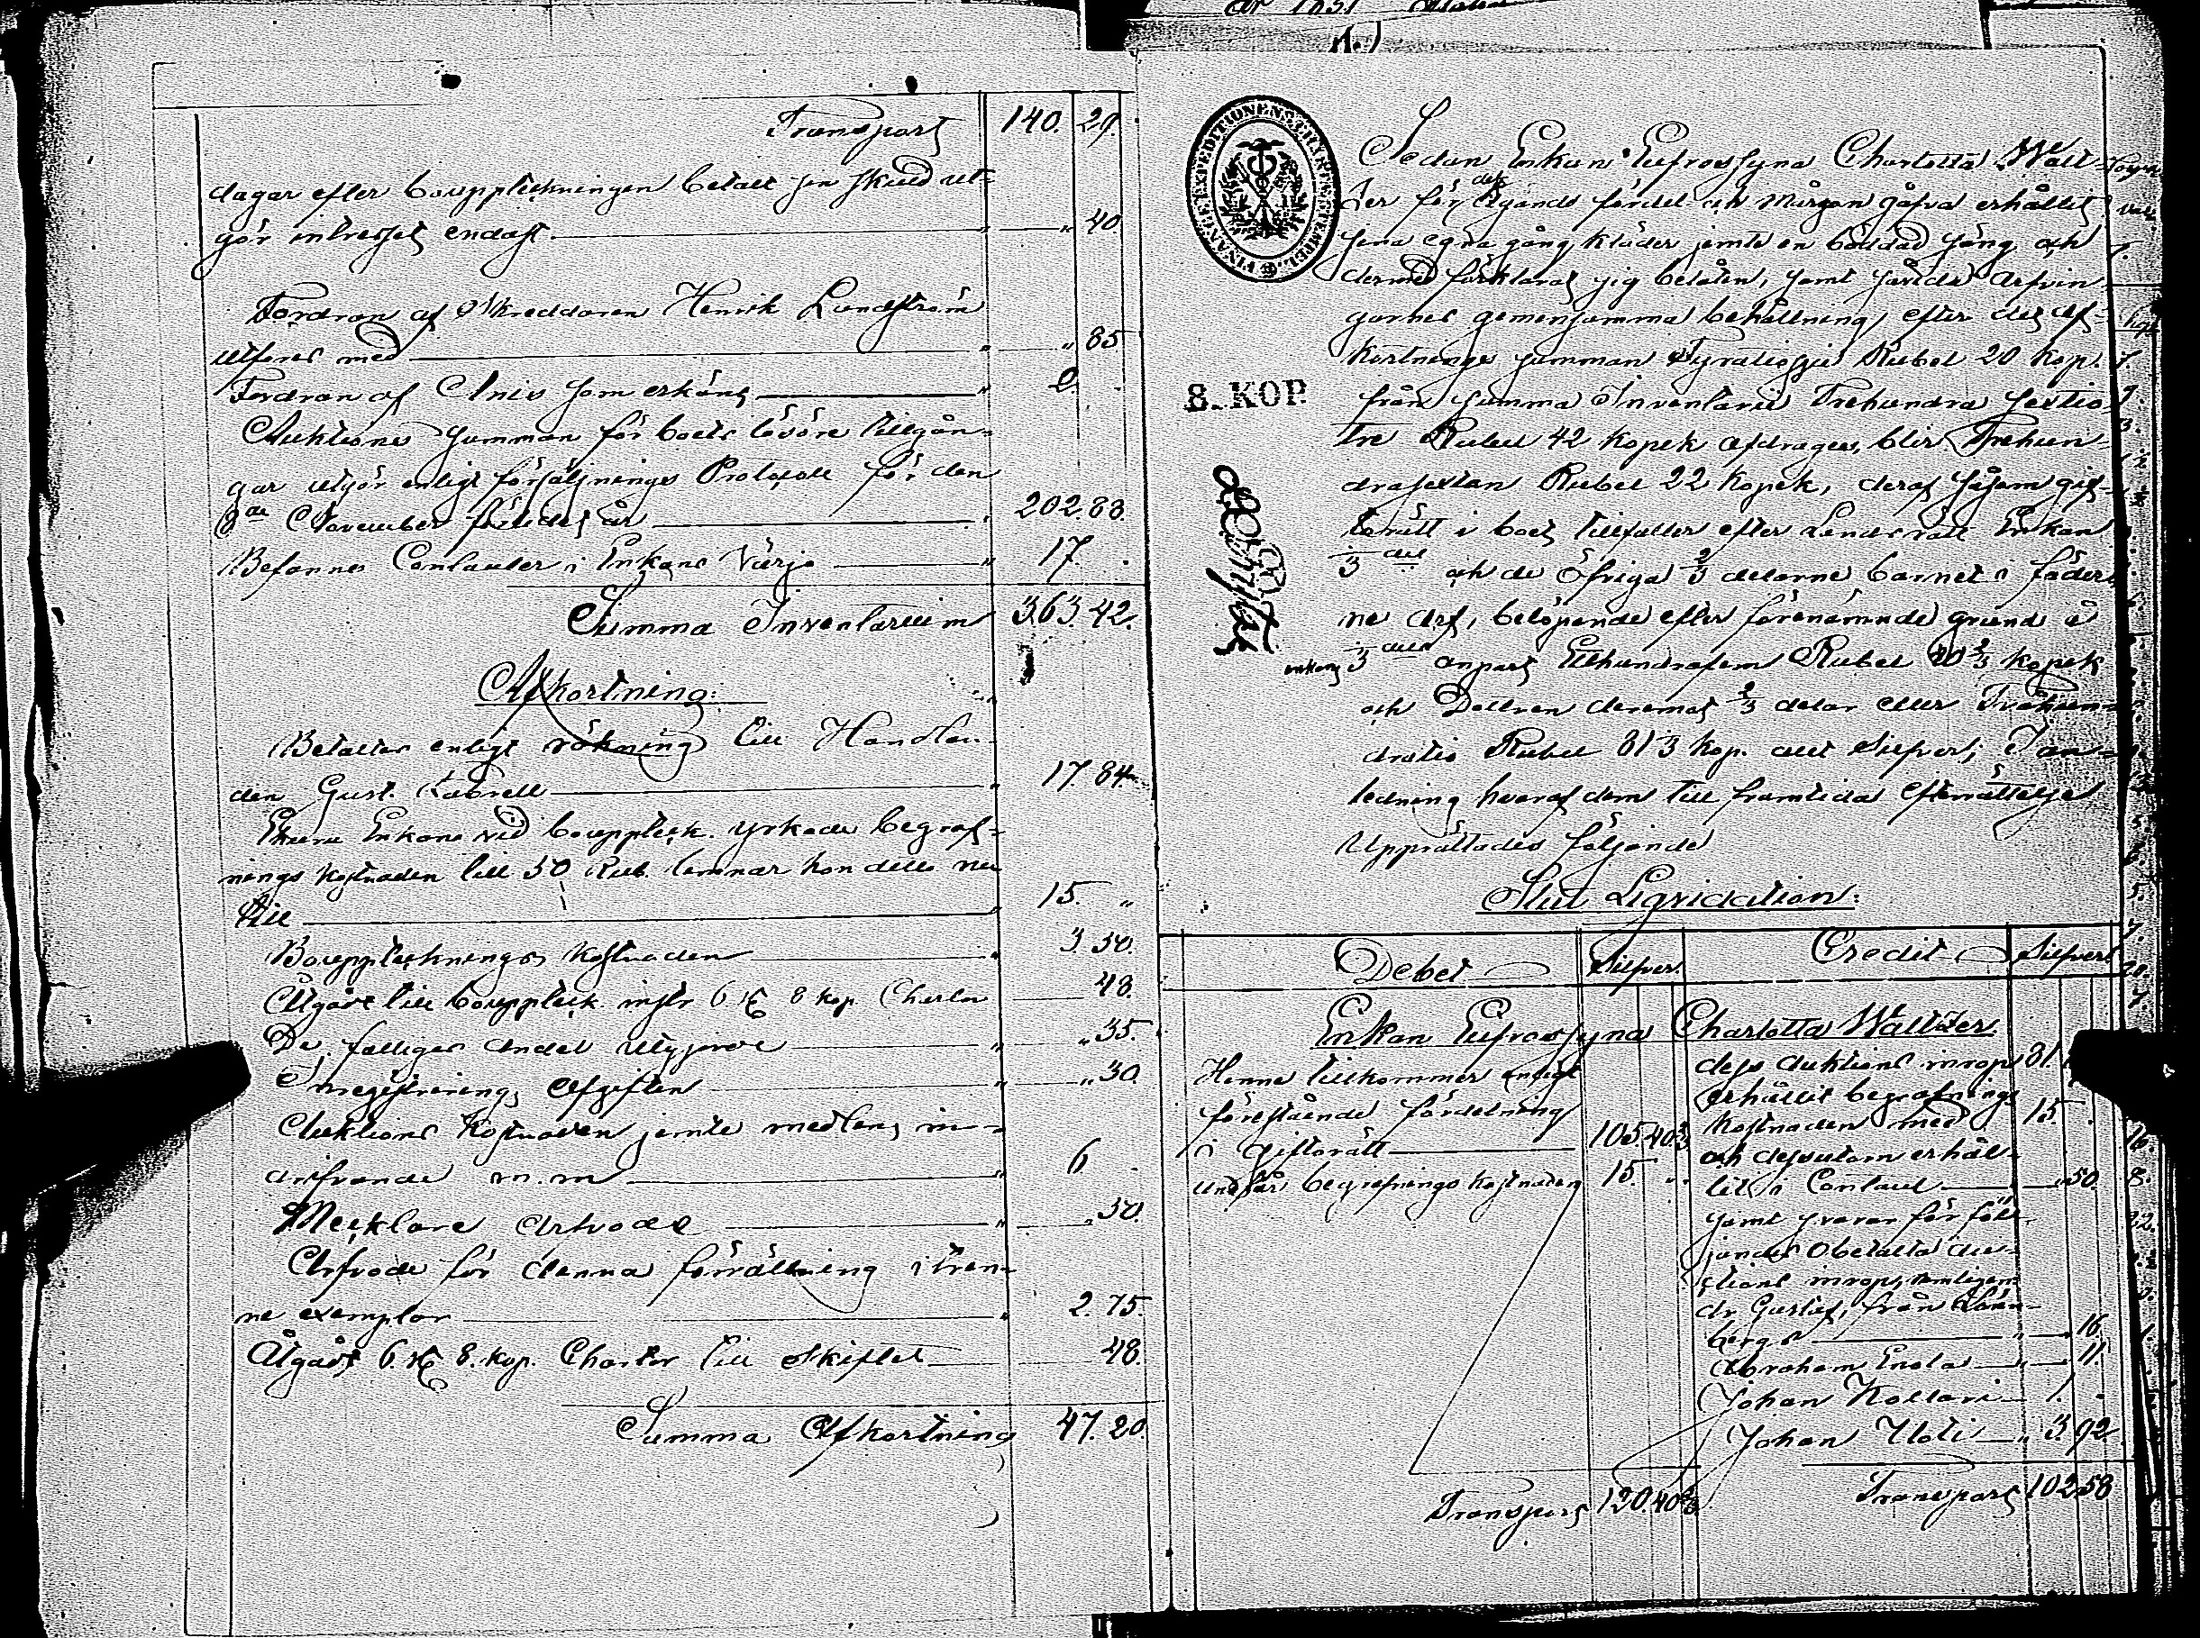 Transport 140. 29.
dagar efter bouppteckningen betalt sin skuld ut-
gör intresset endast " " 40
Fordran af Skreddaren Henrik Lundström
utföres med " " 85
Fordran af Anis som erkänts " 2. .
Auktions summan för boets lösöre tillgån-
gar utgör enligt försäljnings Protokoll för den
8de November sistledet år 202. 88.
Befanns Contanter i Enkans Värjo " 17. .
Summa Inventarium 363. 42.
Afkortning:
Betaltes enligt räkning till Handlan-
den Gust. " 17. 84
Ehuru Enkan vid bouppteck. yrkade begraf-
nings kostnaden till 50 Rub. lemnar hon detta nu
till " 15. "
Bouppteknings kostnaden " 3 50.
Åtgått till bouppteck. instr 6 st 8 kop Charter 48.
De fattiges andel utgjorde " " 35.
Inregistrerings Afgiften " " 30.
Auktions Kostnaden jemte medlens in-
drifvande m.m " 6 -
Mecklare Arvode " " 50.
Arfvode för denna förrättning i tven-
ne exemplar " 2. 75.
Åtgått 6. st 8. kop. Charter till skiftet 48.
Summa Afkortning 47. 20
FINANCE EXPEDITIONENS CHARTE STEMPEL
8. KOP.
Sedan Enkan Eufrosyna Charlotta Wall-
der för des Egands fördel och morgon gåfva erhållit
sina egna gång kläder jemte en bäddad säng och
dermed förklarat sig belåten, samt särede Arfvin-
garnes gemensamma behållning, efter det Af-
kortnings summan Fyratiosju Rubel 20 kop.
från summa Inventarii Trehundra sextio-
tre Rubel 42 kopek afdrages, blir Trehun-
drasexton Rubel 22 Kopek, deraf såsom gif-
torätt i boet tillfaller efter Landsrätt Enkan
1/3 del och de öfriga 2/3 delarne barnet i fäder-
ne arf, belöpande efter förenämnde grund å
enkans 1/3 dels anpart Etthundrafem Rubel 40 2/3 kopek
och Dottren deremot 2/3 delar eller Tvåhun-
dratio Rubel 81 1/3 kop. allt Silfver; I an-
ledning hvaraf dem till framtida efterrättelse
Upprättades följande
Slut Liqvidation:
Debet Silfver. Credit Silfver
Enkan Eufrosyna Charlotta Wallder
Henne tillkommer enligt
förestående fördelning
i giftorätt 105. 40 2/3
undfår begrafnings kostnaden 15. "
Transport 120. 40 2/3
dess auktions inrop 81.
erhållit begrafnings
kostnaden med 15. .
och dessutom erhål-
lit i Contant " 50.
samt svarar för föl-
jandes obetalta auc-
tions inrop, nemligen
dr. Gustaf, från
bergs " 16.
Abraham Enola " 11.
Johan Kollari 1. -
Johan Uoti " 3. 92
Transport 102. 58